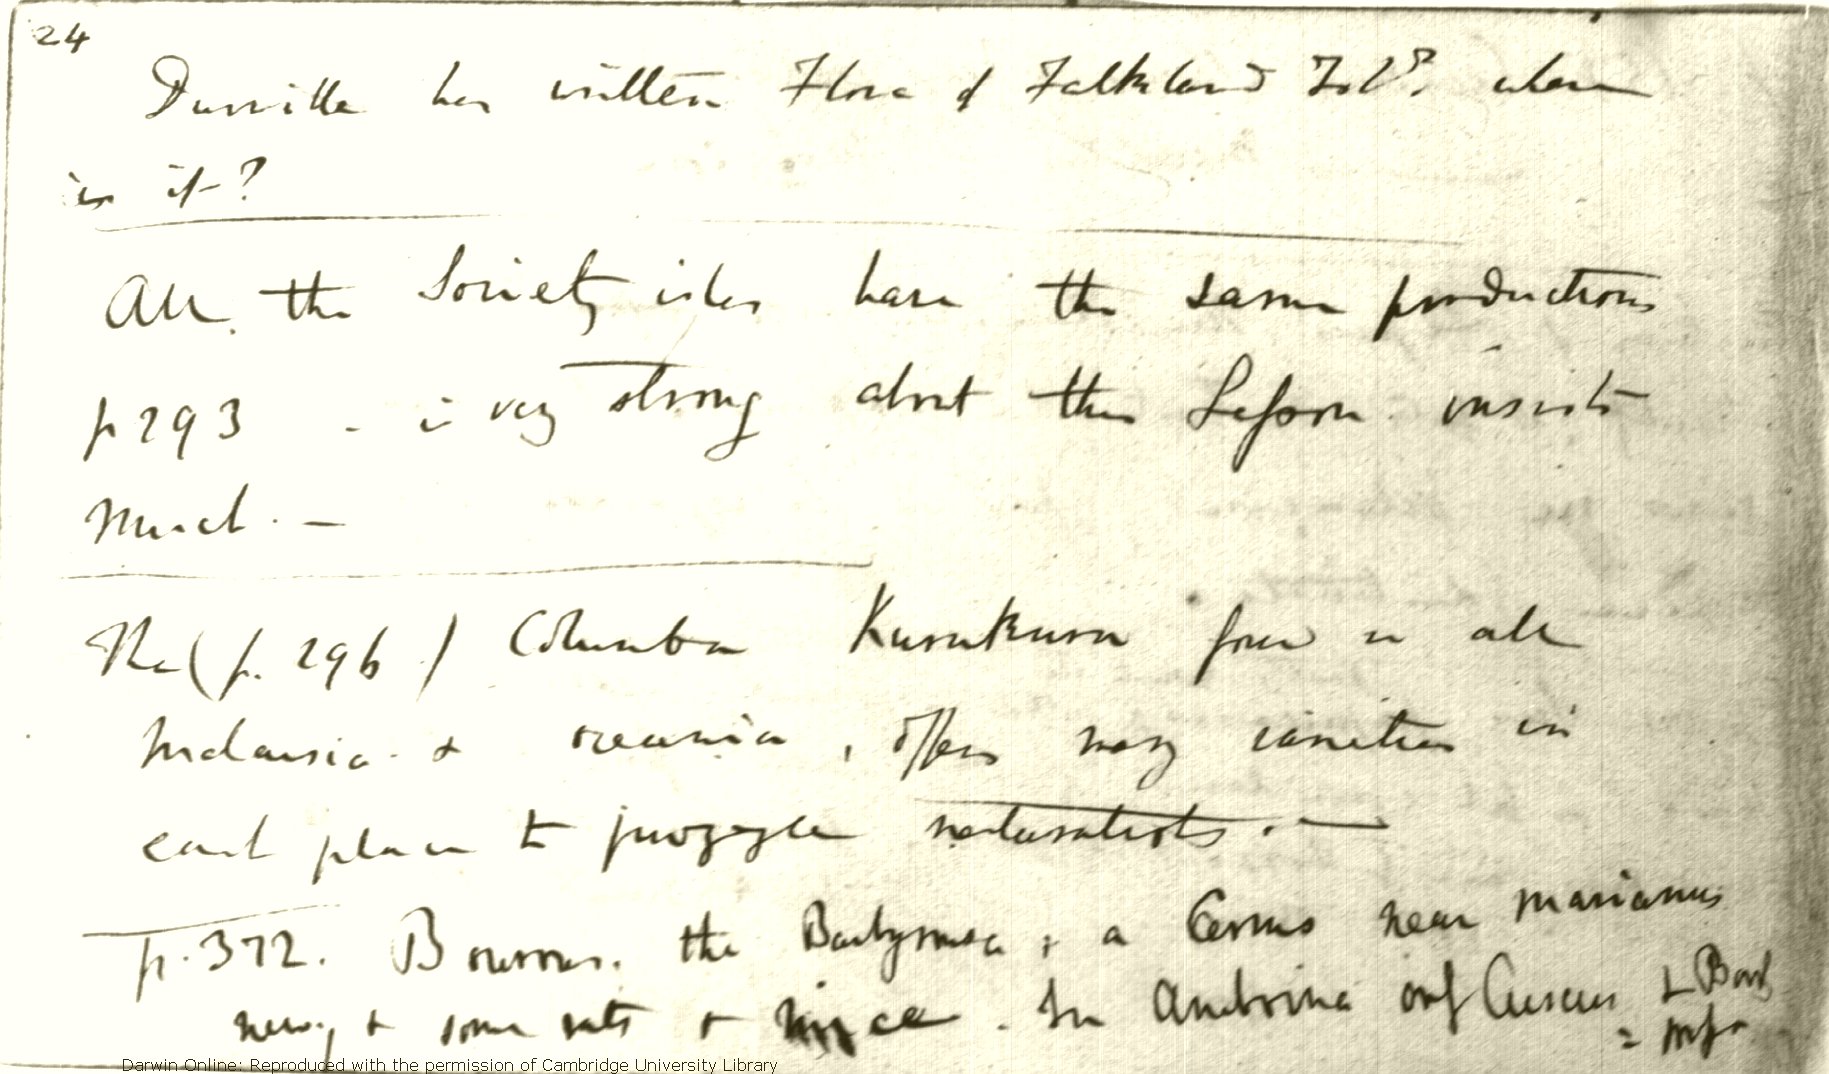 24
Durville has written Flora of Falkland Isd? where
is it?
All the Society isles have the same productions
p 293 - is very strong about this Lesson insists
much. —
The (p. 296.) Columba Kurukuru found in all
Malaisia & oceania, offers many varieties in
each place to puzzle naturalists. —
p. 372. Bourou. the Babyrussa, & a Cervus near marianus
new, & some rats & mice. In Amboina only Cuscus & Barb
Darwin Online: Reproduced with the permission of Cambridge University Library